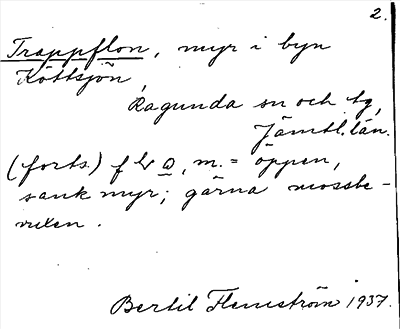 2.
Trappflon, myr i byn
Köttsjön,
Ragunda sn och tg,
Jämtl. län.
(forts) flō, m. = öppen,
sank myr; gärna mossbe-
vuxen.
Bertil Flemström 1937.